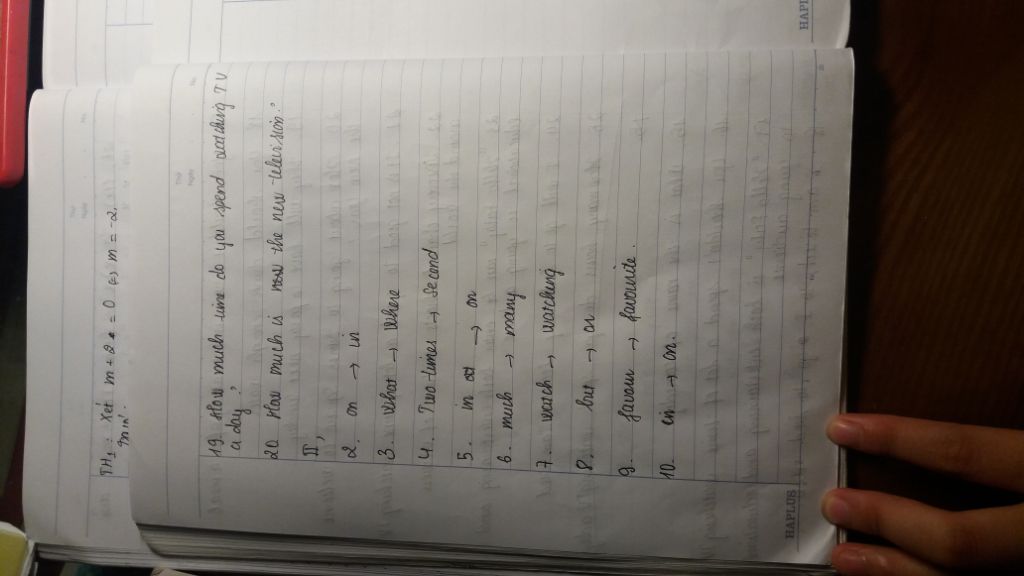 TH1 : Xét m + 2 = 0 (=) m = -2.
min.
19. How much time do you spend watching TV
a day ?
20. How much is now the new television."
II,
2. on → in
3. What → Where
4. Two-times → second
5. in at → on
6. much → many
7. watch → watching
8. but → on
9. favour → favourite.
10. in → on.
HAPLUS
HAPLUS